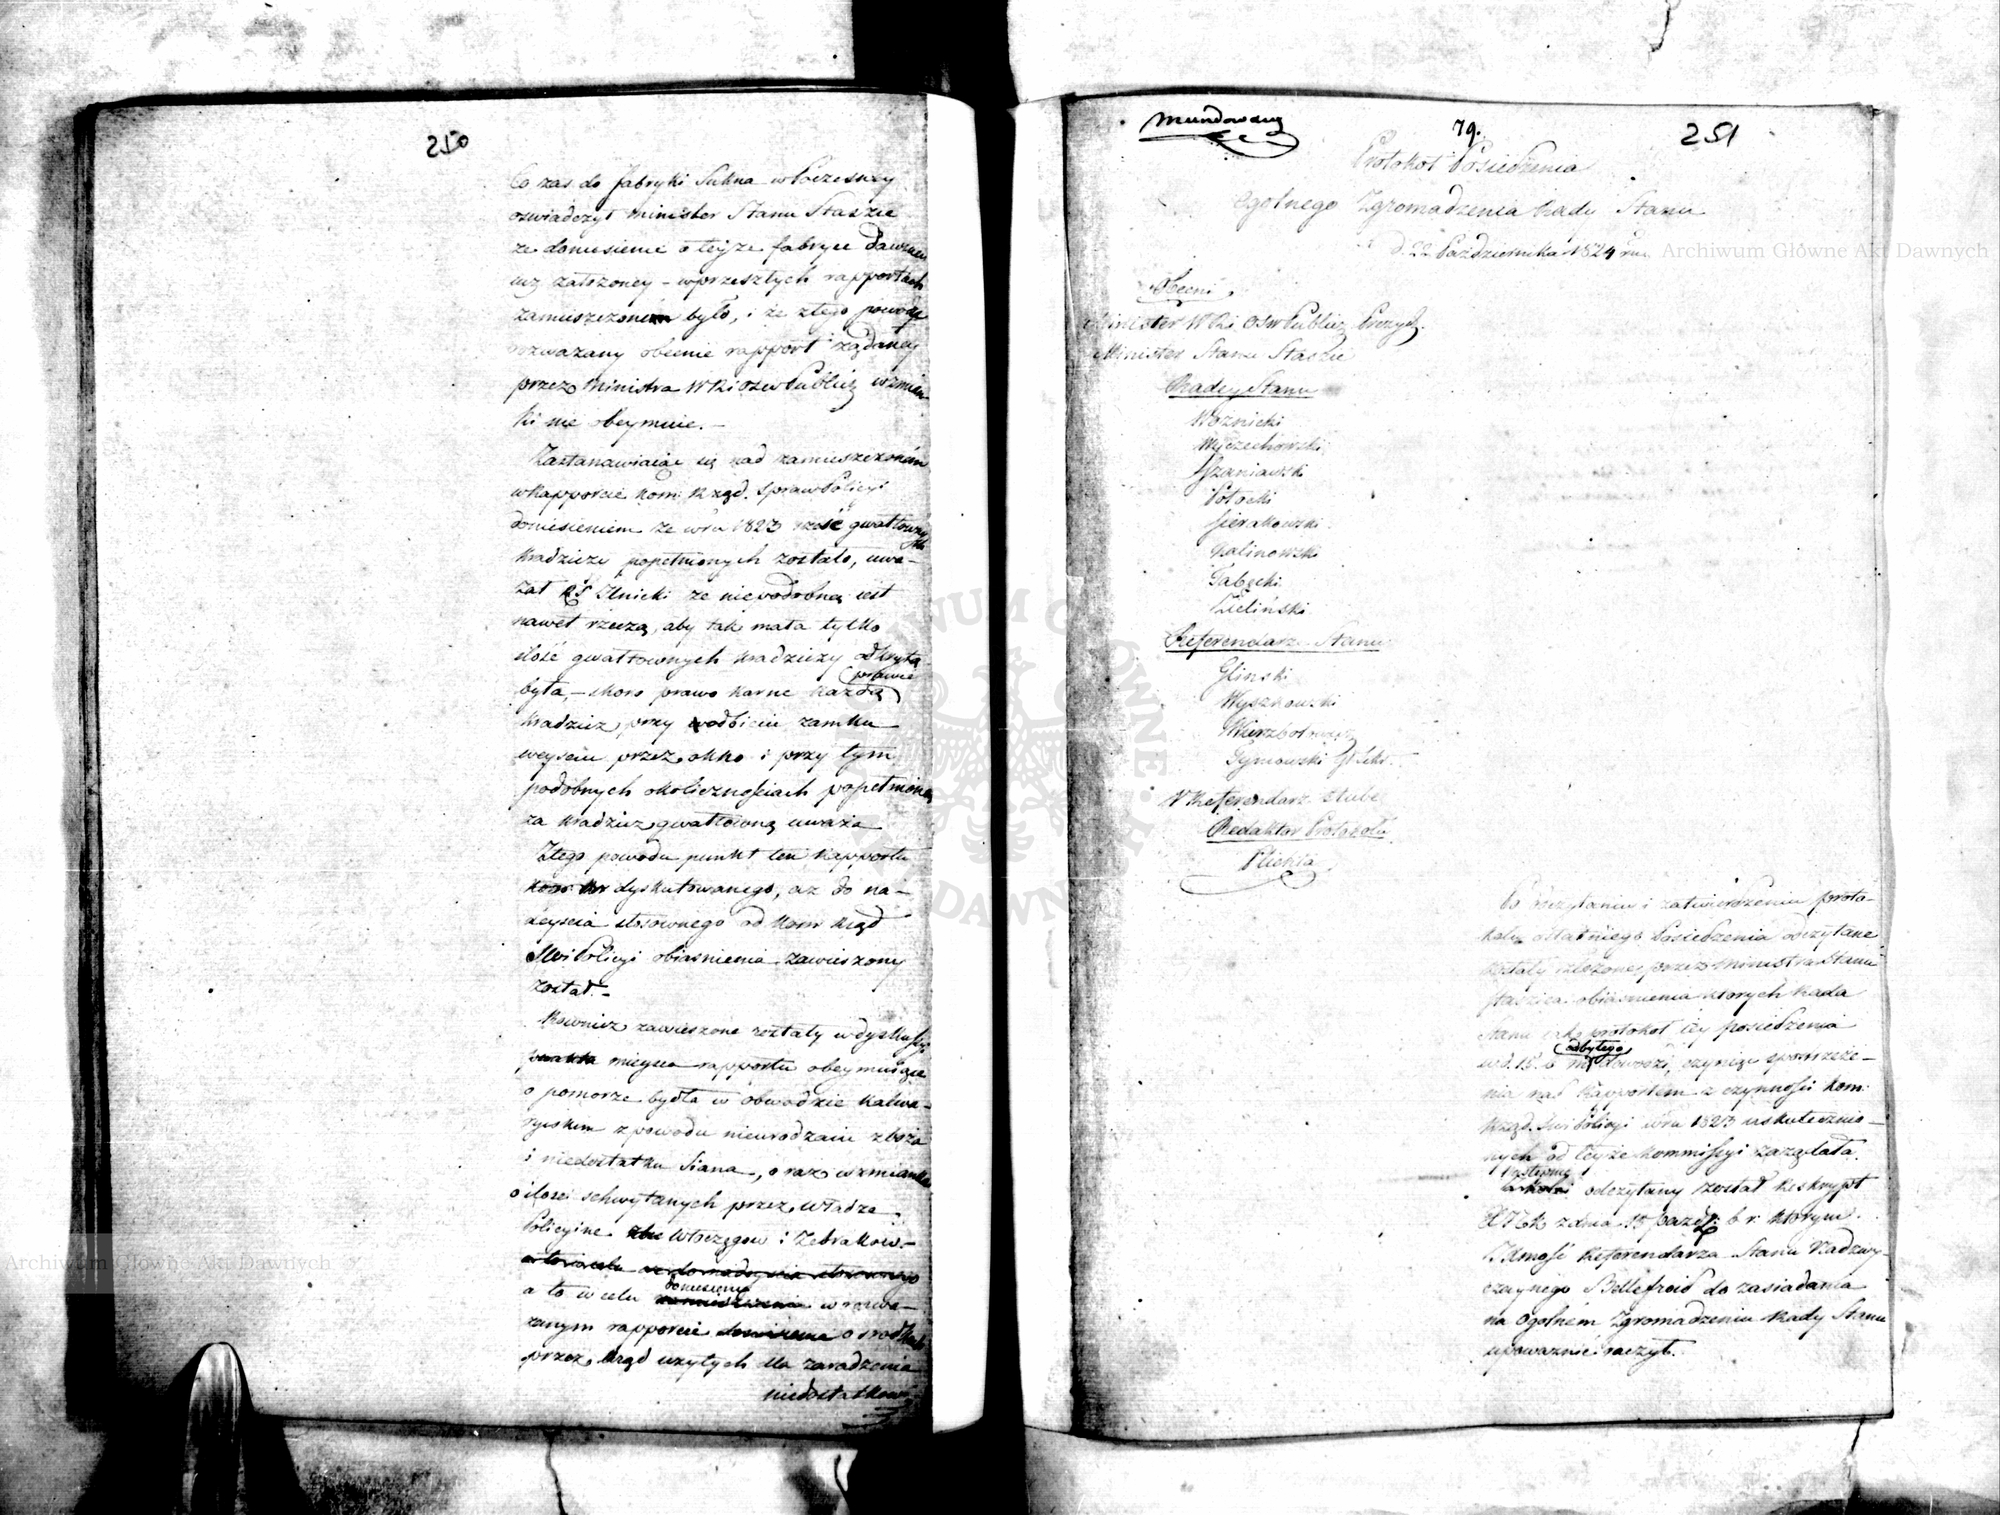 250
Co zas do fabryki Sukna w Łoczeszny
oswiadczył Minister Stanu Staszic
ze doniesienie o teyze fabryce dawniey
iuz załozoney – w przeszłych rapportach
zamieszczoném było, i że z tego powodu
rozwazany obecnie rapport ządaney
przez Ministra WR i Osw Publicz wzmian-
ki nie obeymuie. –
Zastanawiaiąc się nad zamieszczoném
w Rapporcie Kom: Rząd. Spraw i Policyi
doniesieniem ze w ru 1823 sześć gwałtownych
kradzieży popełnionych zostało, uwa-
żał RS Ilnicki ze niepodobną iest
nawet rzeczą, aby tak mała tylko
ilość gwałtownych kradzieży odkrytą
była, – skoro prawo karne każdą prawie
kradziez, przy odbiciu zamku
weysciu przez okno i przy tym
podobnych okolicznościach popełnioną
za kradziez gwałtowną uważa
Z tego powodu punkt ten Rapportu
dyskutowanego, az do na-
deyscia stosownego od Kom Rząd
SW i Policyi obiasnienia zawieszony
został. –
Rowniez zawieszone zostały w dyskussyi
mieysca rapportu obeymuiące
o pomorze bydła w obwodzie Kalwa-
ryiskim z powodu nieurodzaiu zboża
i niedostatku siana, oraz wzmianka
o ilosci schwytanych przez Władze
Policyine Włoczęgow i Zebrakow. –
a to w celu doniesienia w rozwa-
zanym rapporcie o srodkach
przez Rząd uzytych dla zaradzenia
niedostatkowi
Mundowany
79.
251
Protokoł Posiedzenia
Ogolnego Zgromadzenia Rady Stanu
d. 22 Pazdziernika 1824 ru.
Obecni
Minister WR i Osw Publicz Prezyd.
Minister Stanu Staszic
Radcy Stanu
Woznicki
Wyczechowski
Szaniawski
Potocki
Sierakowski
Kalinowski
Gabecki
Zieliński
Referendarze Stanu
Gliński
Wyszkowski
Wierzbołowicz
Tymowski Gł Sekr.
N Referendarz Stube
Redaktor Protokołu
Plichta
Po odczytaniu i zatwierdzeniu proto-
kołu ostatniego Posiedzenia odczytane
zostały złozone przez Ministra Stanu
Staszica obiasnienia ktorych Rada
Stanu iak protokoł iey posiedzenia
w d. 15. b m odbytego dowodzi, czyniąc spostrzeże-
nia nad Rapportem z czynności Kom:
Rząd. SW i Policyi w ru 1823 uskutecznio-
nych od teyże Kommissyi zażądała.
Następnie odczytany został Reskrypt
z dnia 15 pazdz: b r. ktorym
JKmość Referendarza Stanu Nadzwy-
czaynego Bellefroid do zasiadania
na Ogolném Zgromadzeniu Rady Stanu
upoważnić raczył.
Archiwum Główne Akt Dawnych
Archiwum Główne Akt Dawnych
ARCHIWUM GŁÓWNE AKT DAWNYCH